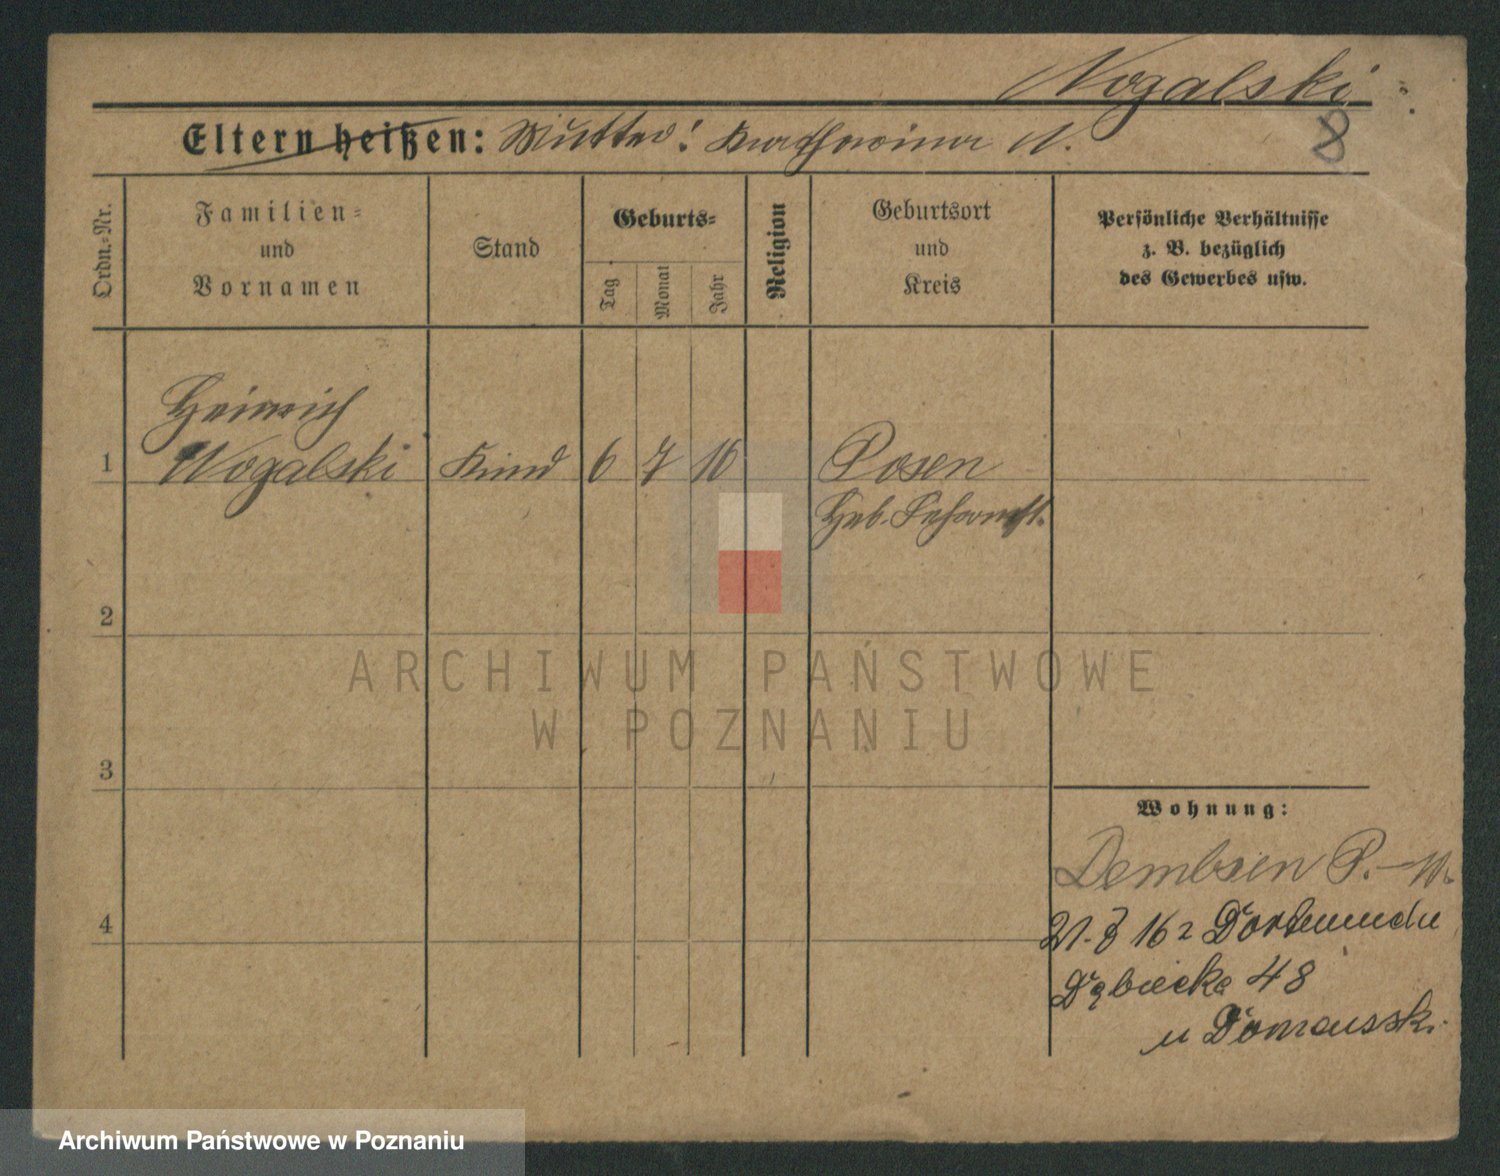 Nogalski
8
Eltern heißen: Mutter: Katharina N.
Ordn.-Nr.
Familien-
und
Vornamen
Stand
Geburts-
Tag
Monat
Jahr
Religion
Geburtsort
und
Kreis
Persönliche Verhältnisse
z. B. bezüglich
des Gewerbes usw.
Heinrich
1 Nogalski Kind 6 7 16 Posen
Heb.
2
ARCHIWUM PAŃSTWOWE
W POZNANIU
3
Wohnung:
Dembsen P.-W.
4
21. 8 16 z Dortmundu
Dębiecka 48
u Domausski
Archiwum Państwowe w Poznaniu